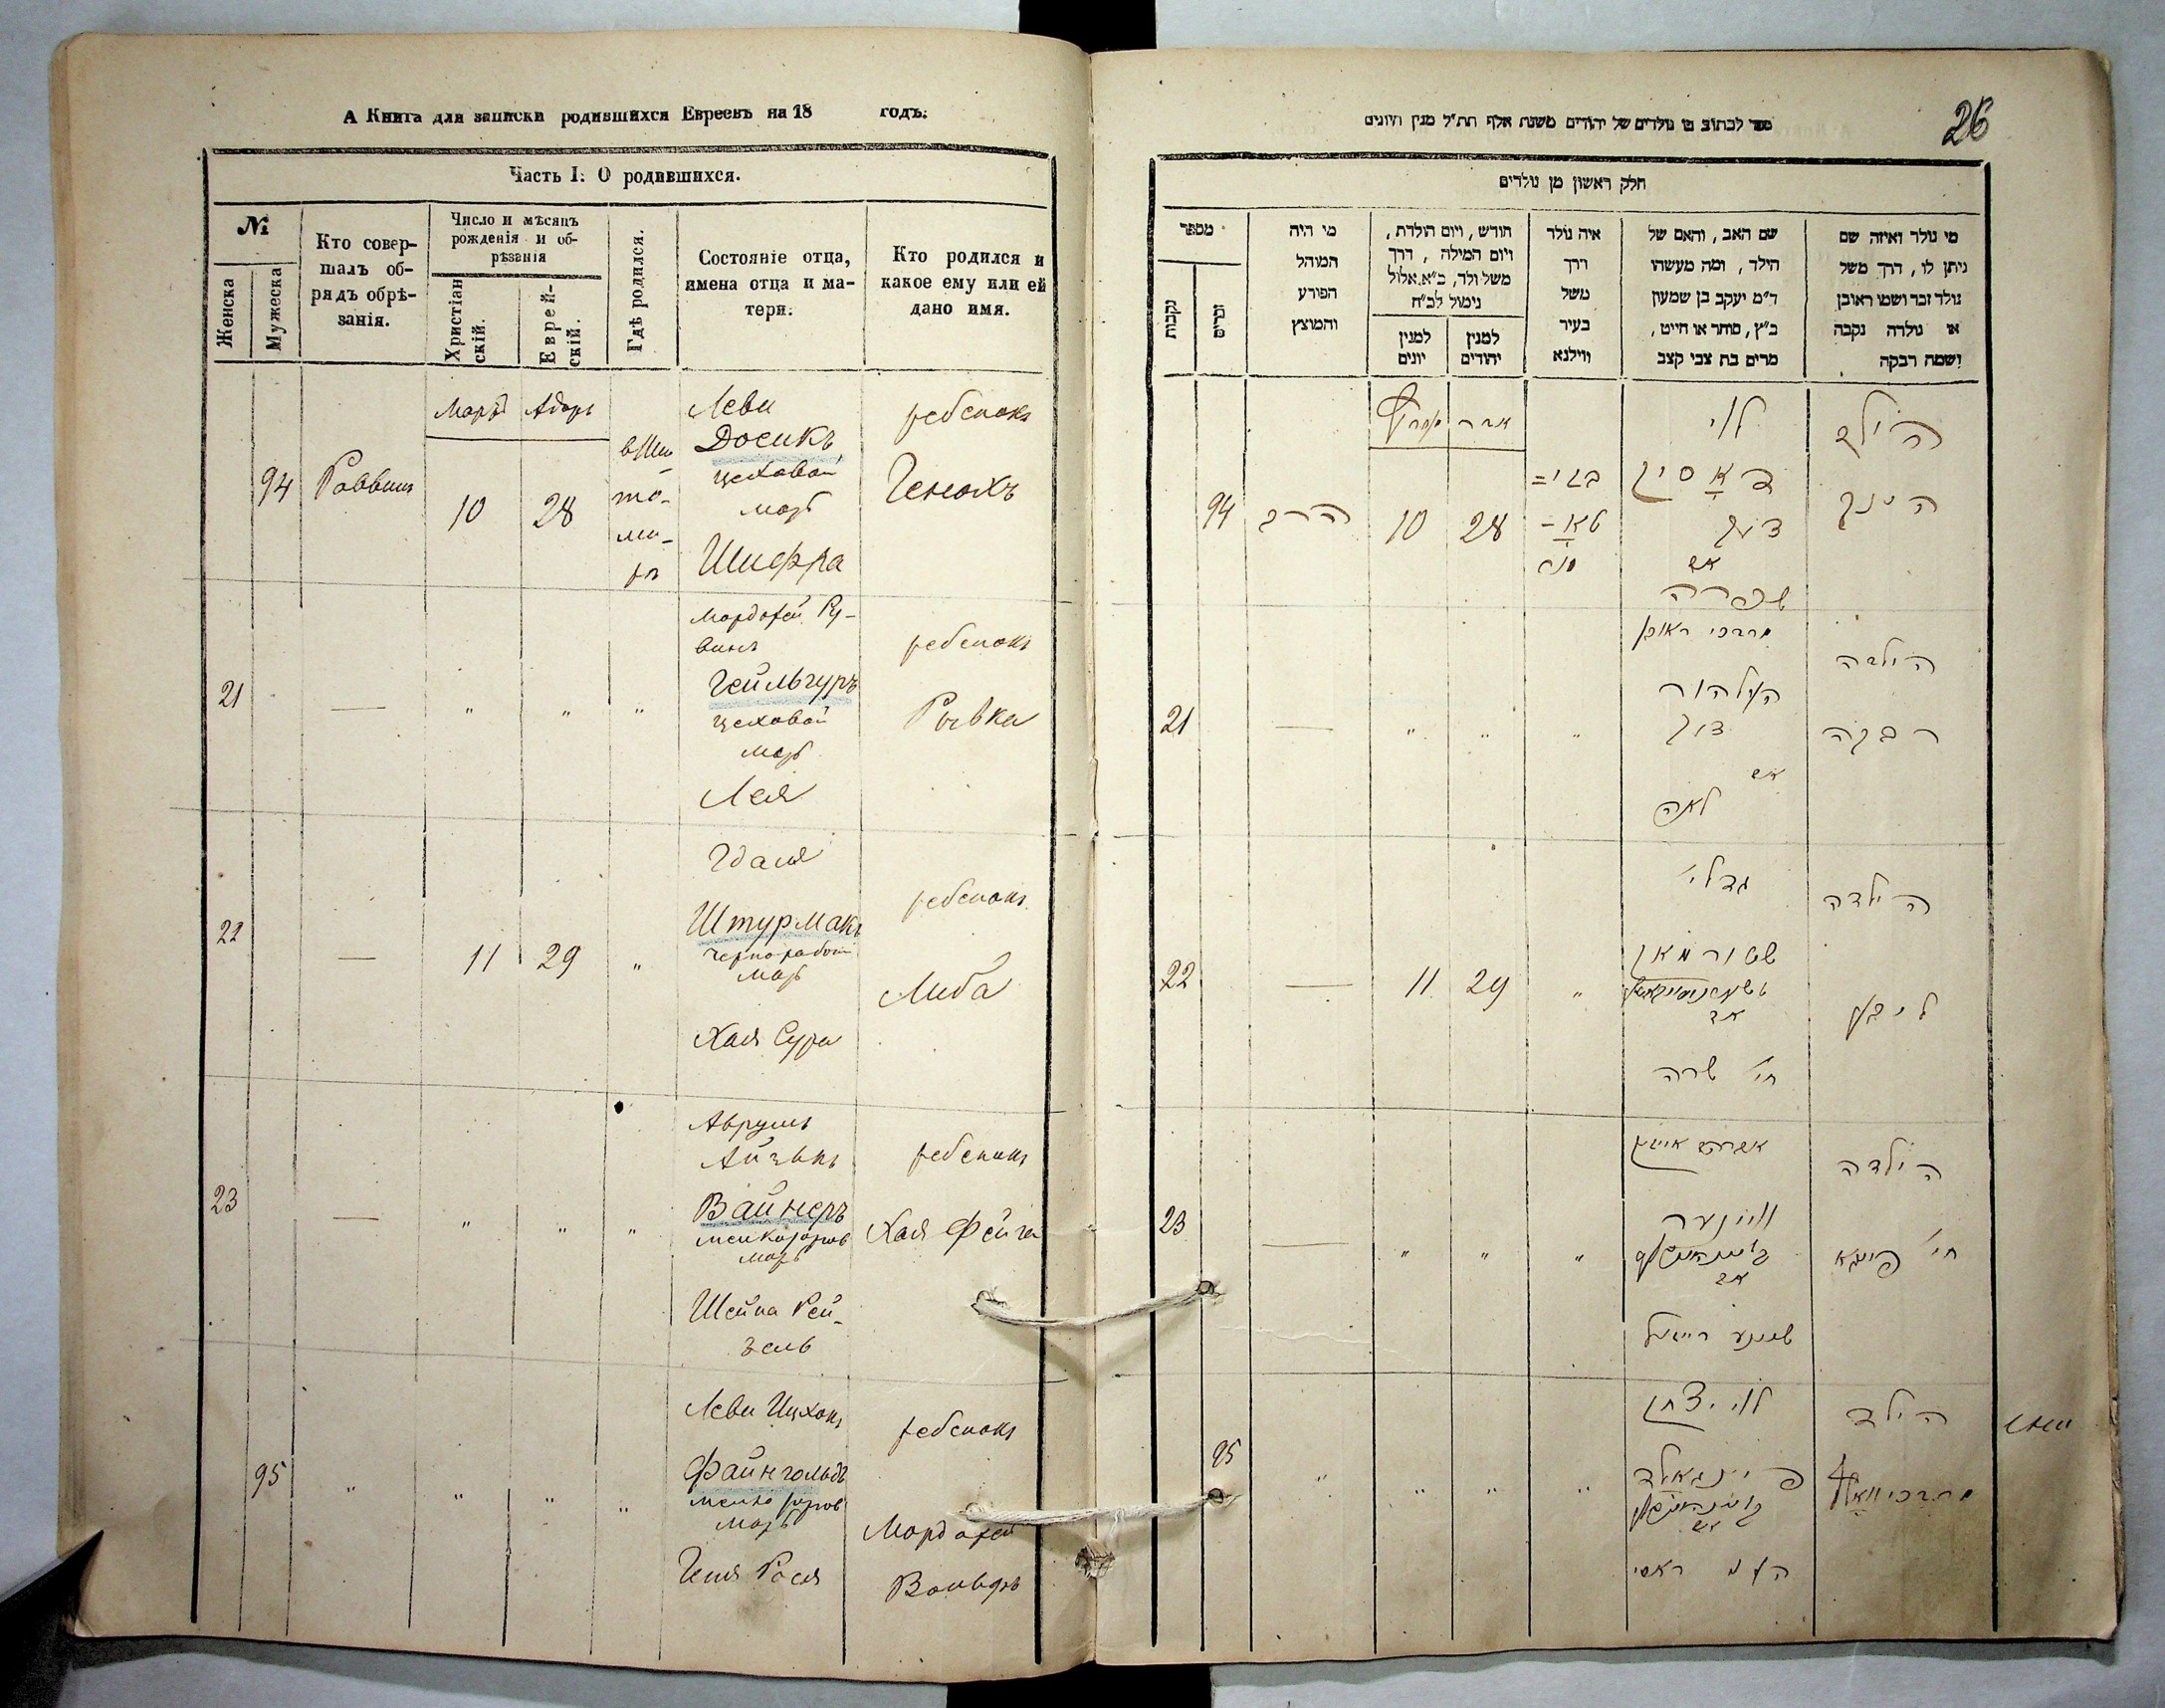 А Книга для записки родившихся Евреевъ на 18 годъ.
Часть I. О родившихся.
№
Женска
Мужеска
Кто совер-
шалъ об-
рядъ обрѣ-
занія.
Число и мѣсяцъ
рожденія и об-
рѣзанія
Христіан
скій.
Еврей-
скій.
Гдѣ родился.
Состояніе отца,
имена отца и ма-
тери.
Кто родился и
какое ему или ей
дано имя.
Мартъ Адаръ
94 Раввинъ 10 28
вЖи
то-
ми-
рѣ
Леви
Досикъ
цеховой
мать
Шифра
ребенокъ
Генохъ
21 — " " "
Мордохей Ру-
винъ
Гейльгуръ
цеховой
мать
Лея
ребенокъ
Рывка
22 — 11 29 "
Гдаля
Штурмакъ
чернорабоч
мать
Хая Сура
ребенокъ
Либа
23 — " " "
Аврумъ
Айзикъ
Вайнеръ
мать
Шейна Рей-
зель
ребенокъ
Хая Фейга
95 " " " "
Леви Ицхокъ
Файнгольдъ
мать
Геня Рося
ребенокъ
Мордохей
Вольфъ
26
ספר לכתוב בו נולדים של יהודים משנת אלף תת״ל מנין היונים
חלק ראשון מן נולדים
מספר
נקבות
זכרים
מי היה
המוהל
הפורע
והמוצץ
חודש, ויום הולדת,
ויום המילה, דרך
משל ולד, כ״א אלול
נימול לכ״ח
למנין
יונים
למנין
יהודים
איה נולד
דרך
משל
בעיר
ווילנא
שם האב, והאם של
הילד, ומה מעשהו
ד״מ יעקב בן שמעון
כ״ץ, סוחר או חייט,
מרים בת צבי קצב
מי נולד ואיזה שם
ניתן לו, דרך משל
נולד זכר ושמו ראובן
או נולדה נקבה
ושמה רבקה
94 הרב 10 28
לוי
דאסיק
אם
שפרה
הילד
הינך
21 — " " "
מרדכי ראובן
אם
לאה
הילדה
רבקה
22 — 11 29 "
גדלי׳
שטורמאק
אם
חי׳ שרה
הילדה
ליבע
23 — " " "
אברהם אייזיק
ווינער
אם
שיינע רייזל
הילדה
חי׳ פייגא
95 " " " "
לוי יצחק
פיינגאלד
אם
הילד